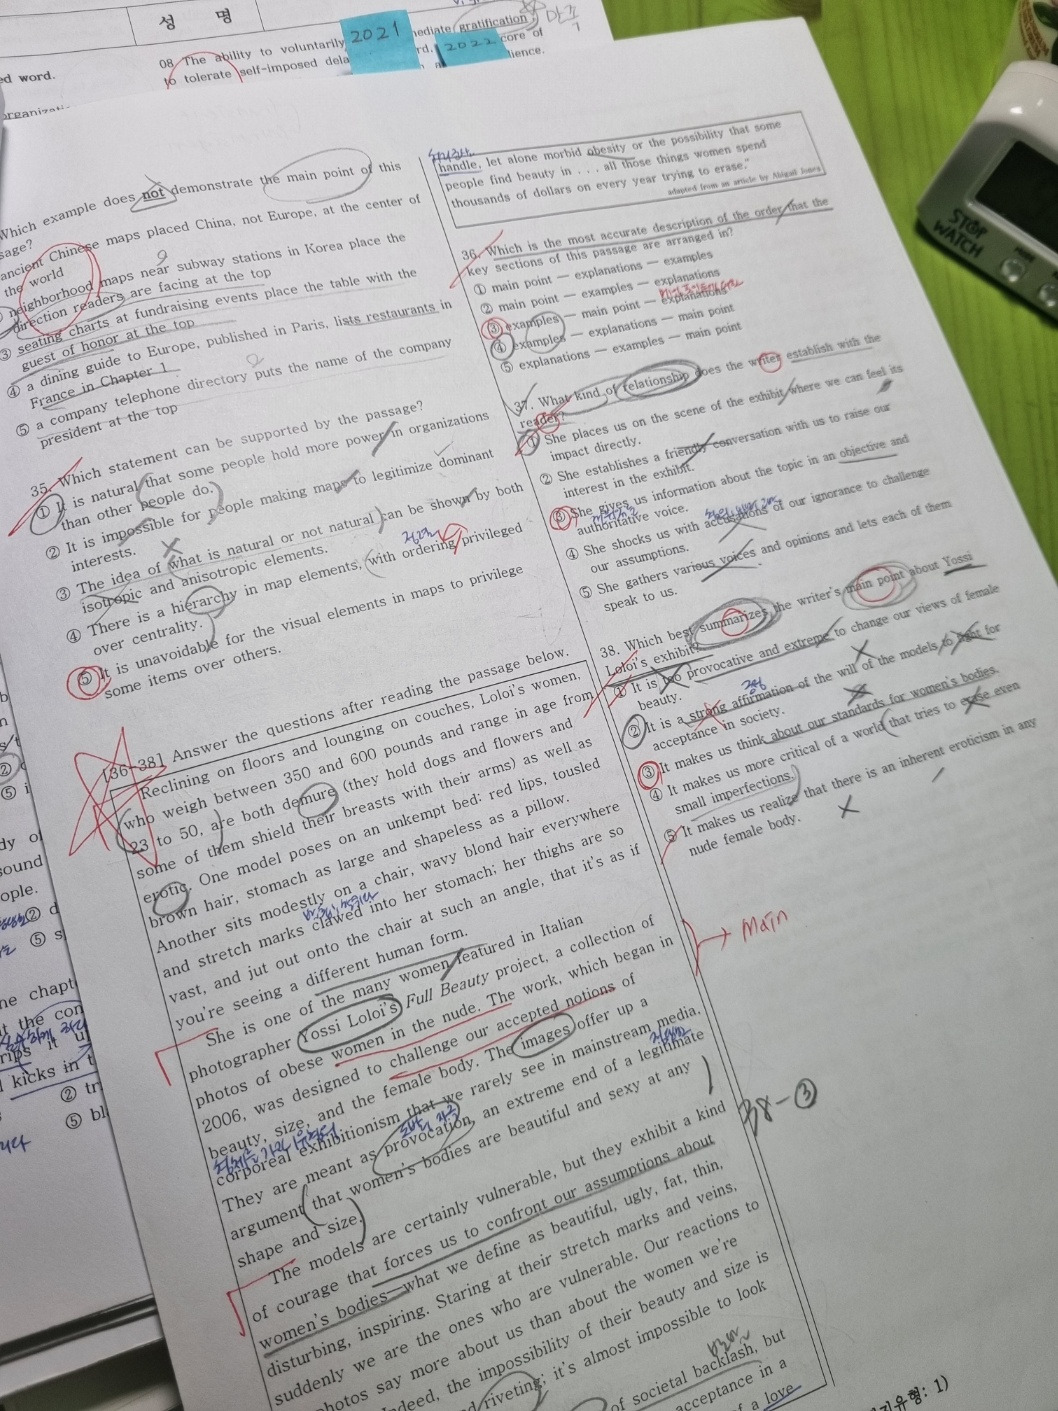 성 명
2021
2022
만족
08. The ability to voluntarily
mediate gratification
to tolerate self-imposed dela
core of
ience.
ed word.
Which example does not demonstrate the main point of this
sage?
ancient Chinese maps placed China, not Europe, at the center of
the world
neighborhood maps near subway stations in Korea place the
direction readers are facing at the top
③ seating charts at fundraising events place the table with the
guest of honor at the top
④ a dining guide to Europe, published in Paris, lists restaurants in
France in Chapter 1
⑤ a company telephone directory puts the name of the company
president at the top
35. Which statement can be supported by the passage?
① It is natural that some people hold more power in organizations
than other people do.
② It is impossible for people making maps to legitimize dominant
interests.
③ The idea of what is natural or not natural can be shown by both
isotropic and anisotropic elements.
④ There is a hierarchy in map elements, with ordering privileged
over centrality.
⑤ It is unavoidable for the visual elements in maps to privilege
some items over others.
[36-38] Answer the questions after reading the passage below.
Reclining on floors and lounging on couches, Loloi's women,
who weigh between 350 and 600 pounds and range in age from
23 to 50, are both demure (they hold dogs and flowers and
some of them shield their breasts with their arms) as well as
erotic. One model poses on an unkempt bed: red lips, tousled
brown hair, stomach as large and shapeless as a pillow.
Another sits modestly on a chair, wavy blond hair everywhere
and stretch marks clawed into her stomach; her thighs are so
vast, and jut out onto the chair at such an angle, that it's as if
you're seeing a different human form.
She is one of the many women featured in Italian
photographer Yossi Loloi's Full Beauty project, a collection of
photos of obese women in the nude. The work, which began in
2006, was designed to challenge our accepted notions of
beauty, size, and the female body. The images offer up a
corporeal exhibitionism that we rarely see in mainstream media.
They are meant as provocation, an extreme end of a legitimate
argument that women's bodies are beautiful and sexy at any
shape and size.
The models are certainly vulnerable, but they exhibit a kind
of courage that forces us to confront our assumptions about
women's bodies—what we define as beautiful, ugly, fat, thin,
disturbing, inspiring. Staring at their stretch marks and veins,
suddenly we are the ones who are vulnerable. Our reactions to
hotos say more about us than about the women we're
ndeed, the impossibility of their beauty and size is
d riveting; it's almost impossible to look
of societal backlash, but
acceptance in a
f a love
handle, let alone morbid obesity or the possibility that some
people find beauty in . . . all those things women spend
thousands of dollars on every year trying to erase."
adapted from an article by Abigail Jones
36. Which is the most accurate description of the order that the
key sections of this passage are arranged in?
① main point — explanations — examples
② main point — examples — explanations
③ examples — main point — explanations
④ examples — explanations — main point
⑤ explanations — examples — main point
37. What kind of relationship does the writer establish with the
reader?
① She places us on the scene of the exhibit where we can feel its
impact directly.
② She establishes a friendly conversation with us to raise our
interest in the exhibit.
③ She gives us information about the topic in an objective and
authoritative voice.
④ She shocks us with accusations of our ignorance to challenge
our assumptions.
⑤ She gathers various voices and opinions and lets each of them
speak to us.
38. Which best summarizes the writer's main point about Yossi
Loloi's exhibit?
① It is too provocative and extreme to change our views of female
beauty.
② It is a strong affirmation of the will of the models to fight for
acceptance in society.
긍정
③ It makes us think about our standards for women's bodies.
④ It makes us more critical of a world that tries to erase even
small imperfections.
⑤ It makes us realize that there is an inherent eroticism in any
nude female body.
Main
38-③
STOP
WATCH
he chapt
kicks in t
② tr
⑤ bl
유형: 1)